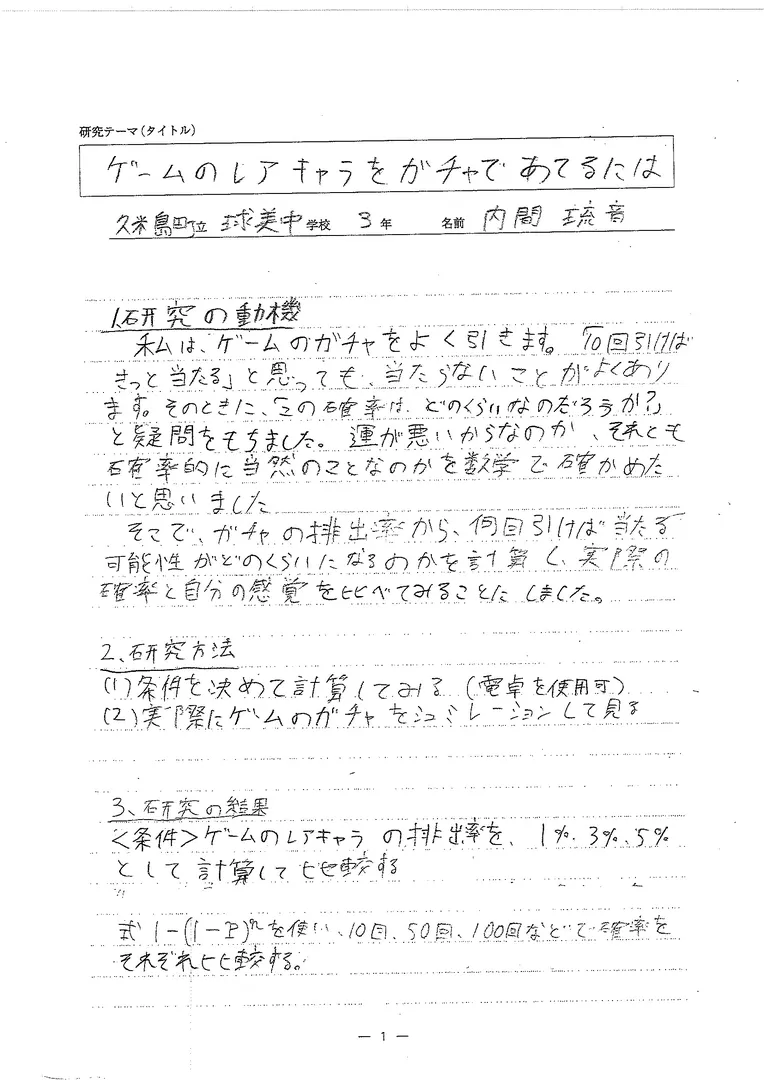 研究テーマ(タイトル)
ゲームのレアキャラをガチャであてるには
久米島町立 球美中学校 3年 名前 内間 琉音
1.研究の動機
私は、ゲームのガチャをよく引きます。「10回引けば
きっと当たる」と思っても、当たらないことがよくあり
ます。そのときに、「この確率は、どのくらいなのだろうか?」
と疑問をもちました。運が悪いからなのか、それとも
確率的に当然のことなのかを数学で確かめた
いと思いました
そこで、ガチャの排出率から、何回引けば当たる
可能性がどのくらいになるのかを計算し、実際の
確率と自分の感覚を比べてみることにしました。
2、研究方法
(1)条件を決めて計算してみる(電卓を使用可)
(2)実際にゲームのガチャをシュミレーションして見る
3、研究の結果
<条件>ゲームのレアキャラの排出率を、1%、3%、5%
として計算して比較する
式 1-(1-P)ⁿを使い、10回、50回、100回などで確率を
それぞれ比較する。
— 1 —